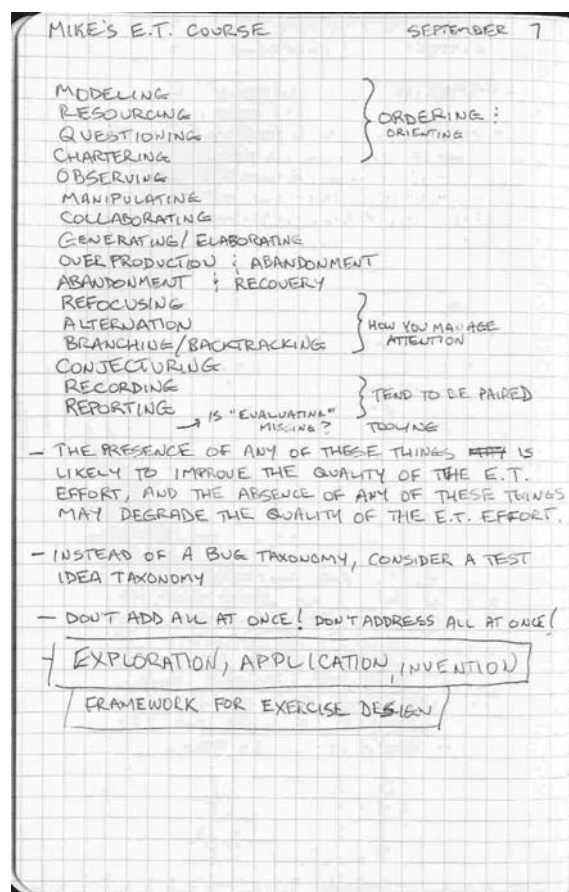 MIKE'S E.T. COURSE SEPTEMBER 7
MODELING
RESOURCING
QUESTIONING
CHARTERING
ORDERING &
ORIENTING
OBSERVING
MANIPULATING
COLLABORATING
GENERATING/ELABORATING
OVERPRODUCTION & ABANDONMENT
ABANDONMENT & RECOVERY
REFOCUSING
ALTERNATION
BRANCHING/BACKTRACKING
HOW YOU MANAGE
ATTENTION
CONJECTURING
RECORDING
REPORTING
TEND TO BE PAIRED
→ IS "EVALUATING" TOOLING
MISSING?
- THE PRESENCE OF ANY OF THESE THINGS IS
LIKELY TO IMPROVE THE QUALITY OF THE E.T.
EFFORT, AND THE ABSENCE OF ANY OF THESE THINGS
MAY DEGRADE THE QUALITY OF THE E.T. EFFORT.
- INSTEAD OF A BUG TAXONOMY, CONSIDER A TEST
IDEA TAXONOMY
- DON'T ADD ALL AT ONCE! DON'T ADDRESS ALL AT ONCE!
EXPLORATION, APPLICATION, INVENTION
FRAMEWORK FOR EXERCISE DESIGN